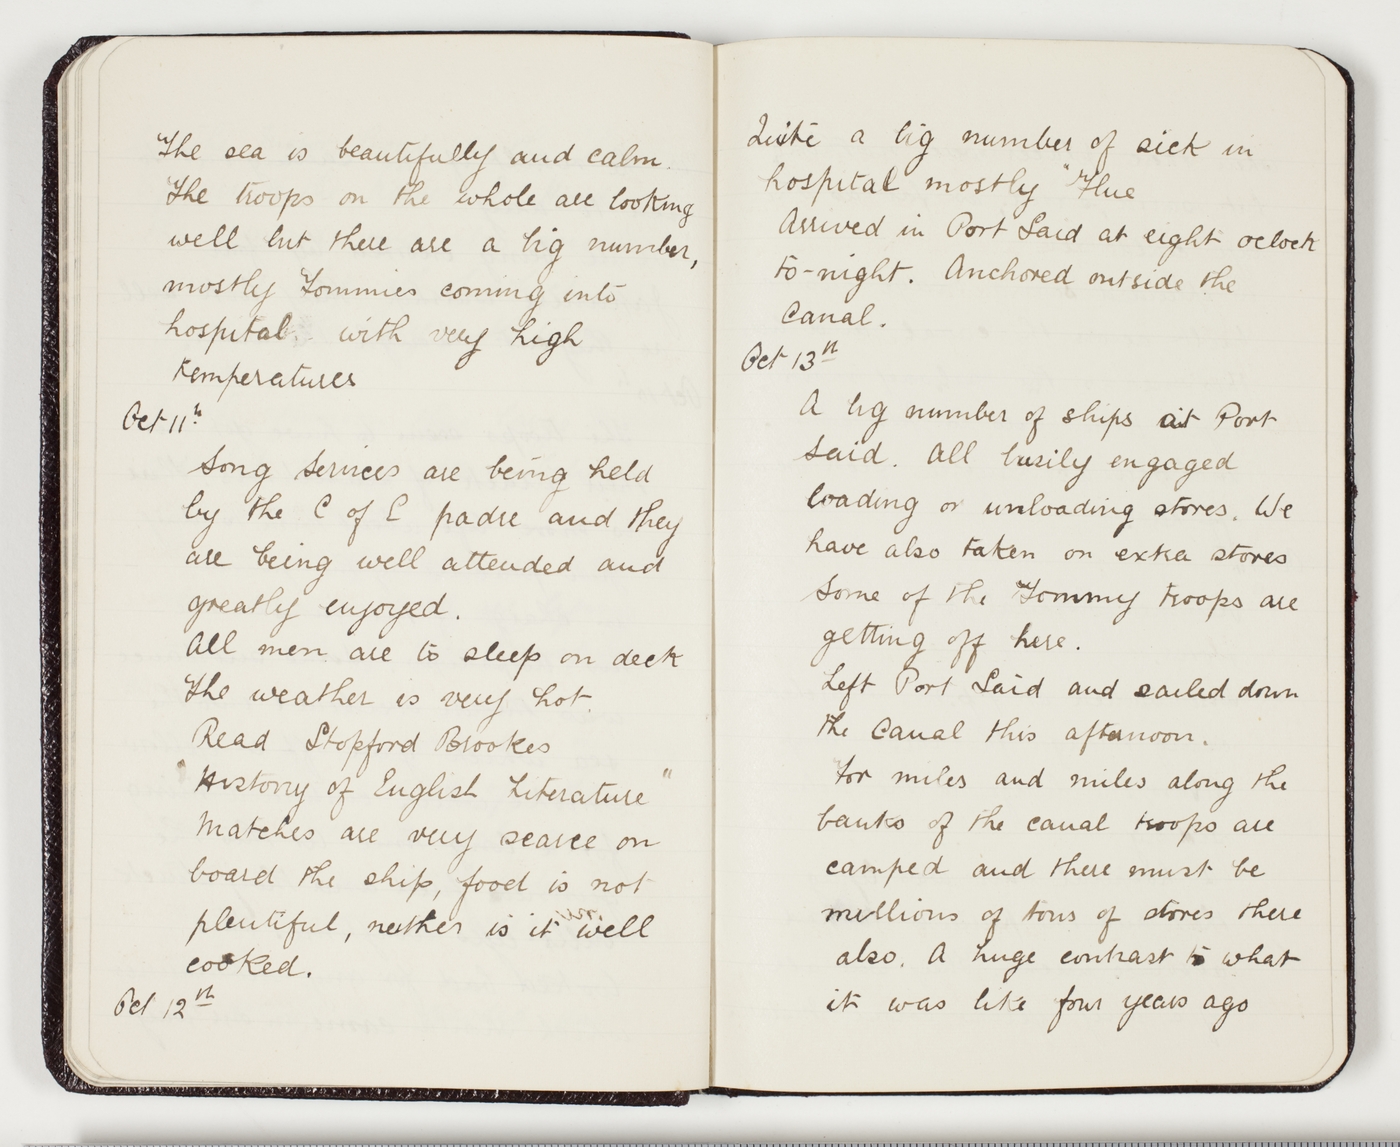 The sea is beautifully and calm.
The troops on the whole are looking
well but there are a big number,
mostly Tommies coming into
hospital with very high
temperatures
Oct 11th
Song Services are being held
by the C of E padre and they
are being well attended and
greatly enjoyed.
All men are to sleep on deck
The weather is very hot.
Read Stopford Brookes
"History of English Literature"
Matches are very scarce on
board the ship, food is not
plentiful, neither is it well
cooked.
Oct 12th
Quite a big number of sick in
hospital mostly "Flue
Arrived in Port Said at eight oclock
to-night. Anchored outside the
Canal.
Oct 13th
A big number of ships at Port
Said. All busily engaged
loading or unloading stores. We
have also taken on extra stores
Some of the Tommy troops are
getting off here.
Left Port Said and sailed down
the Canal this afternoon.
For miles and miles along the
banks of the canal troops are
camped and there must be
millions of tons of stores there
also. A huge contrast to what
it was like four years ago